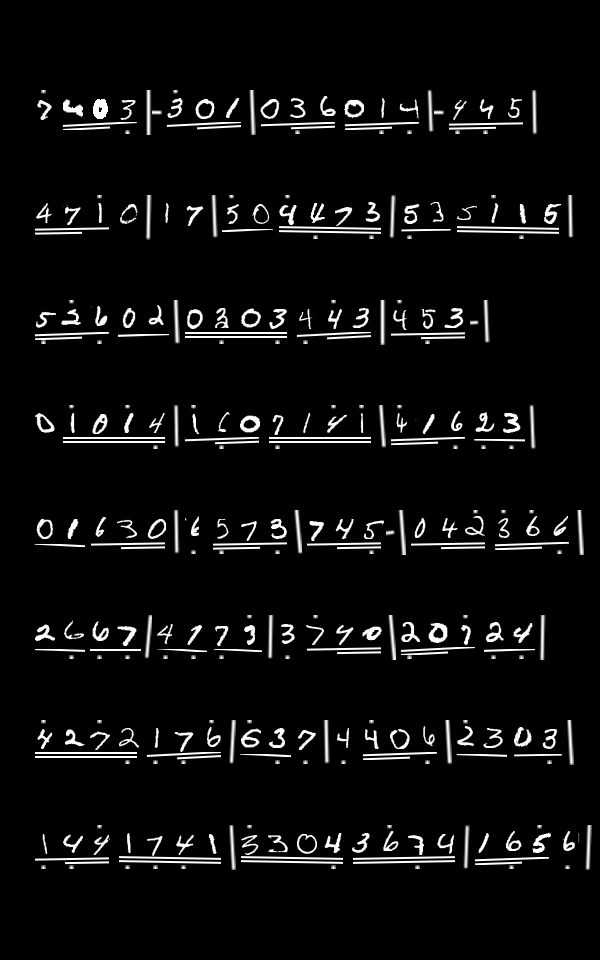 7403|-301|036014|-445|
4710|17|504473|535115|
52602|0303443|453-|
01014|1607141|41623|
01630|6573|745-|042366|
2667|4173|3740|20724|
4272176|637|4406|2303|
1441741|33043674|1656|